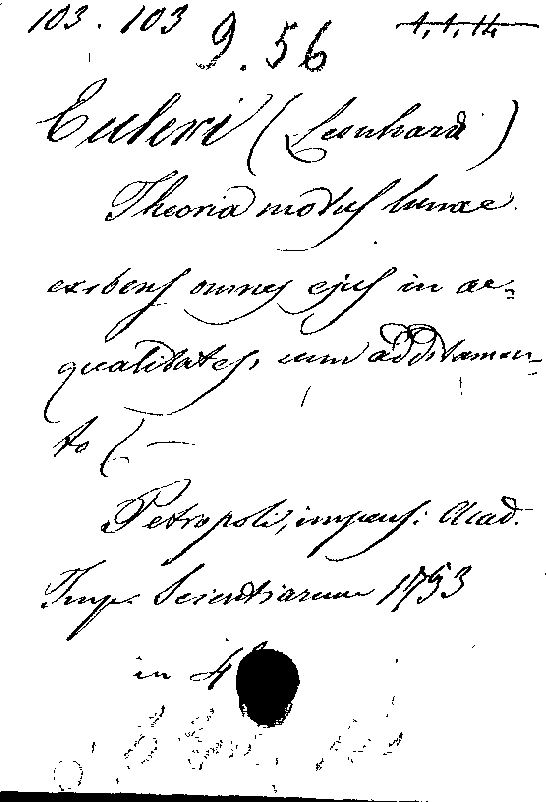 103. 103
9.56
1.1.14
Euleri (Leonhard)
Theoria motus lunae
exibens omnes ejus in ae-
qualitates, cum additamen-
to (—
Petropoli, impens: Acad.
Imp. Scientiarum 1753
in 4